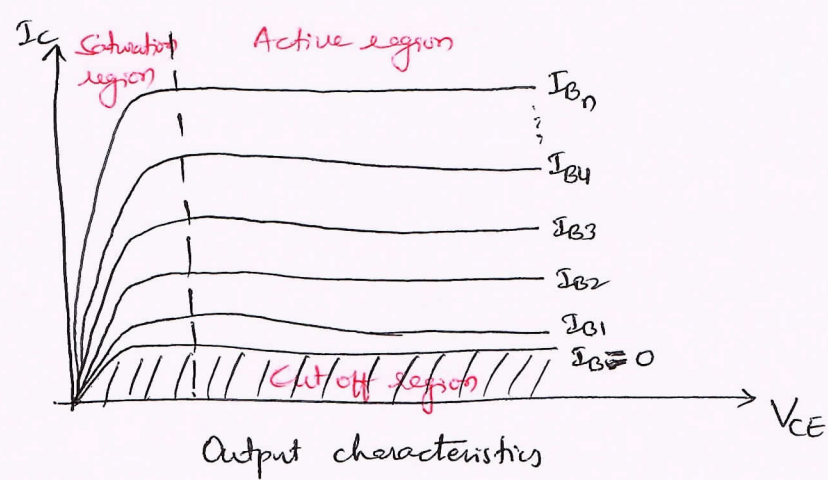 I_C
Saturation
region
Active region
I_Bn
I_B4
I_B3
I_B2
I_B1
I_B = 0
Cut off region
V_CE
Output characteristics